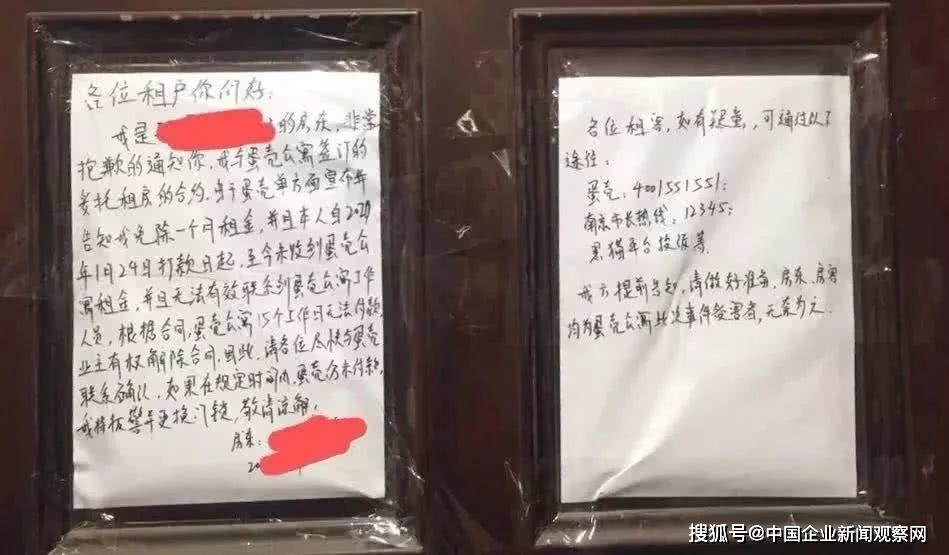 各位租户你们好：
我是 的房东，非常
抱歉的通知你，我与蛋壳公寓签订的
委托租房的合约，由于蛋壳单方面宣布并
告知我免除一个月租金，并且本人自2020
年1月24日打款日起，至今未收到蛋壳公
寓租金，并且无法有效联系到蛋壳公寓工作
人员，根据合同，蛋壳公寓15个工作日无法付款，
业主有权解除合同，因此，请各位尽快与蛋壳
联系确认，如果在规定时间内，蛋壳仍未付款，
我将报警并更换门锁，敬请谅解。
房东：
20
各位租客，如有疑虑，可通过以下
途径：
蛋壳：4001551551；
南京市长热线：12345；
黑猫平台投诉等
我方提前告知，请做好准备，房东、房客
均为蛋壳公寓此次事件受害者，无奈为之.
搜狐号@中国企业新闻观察网